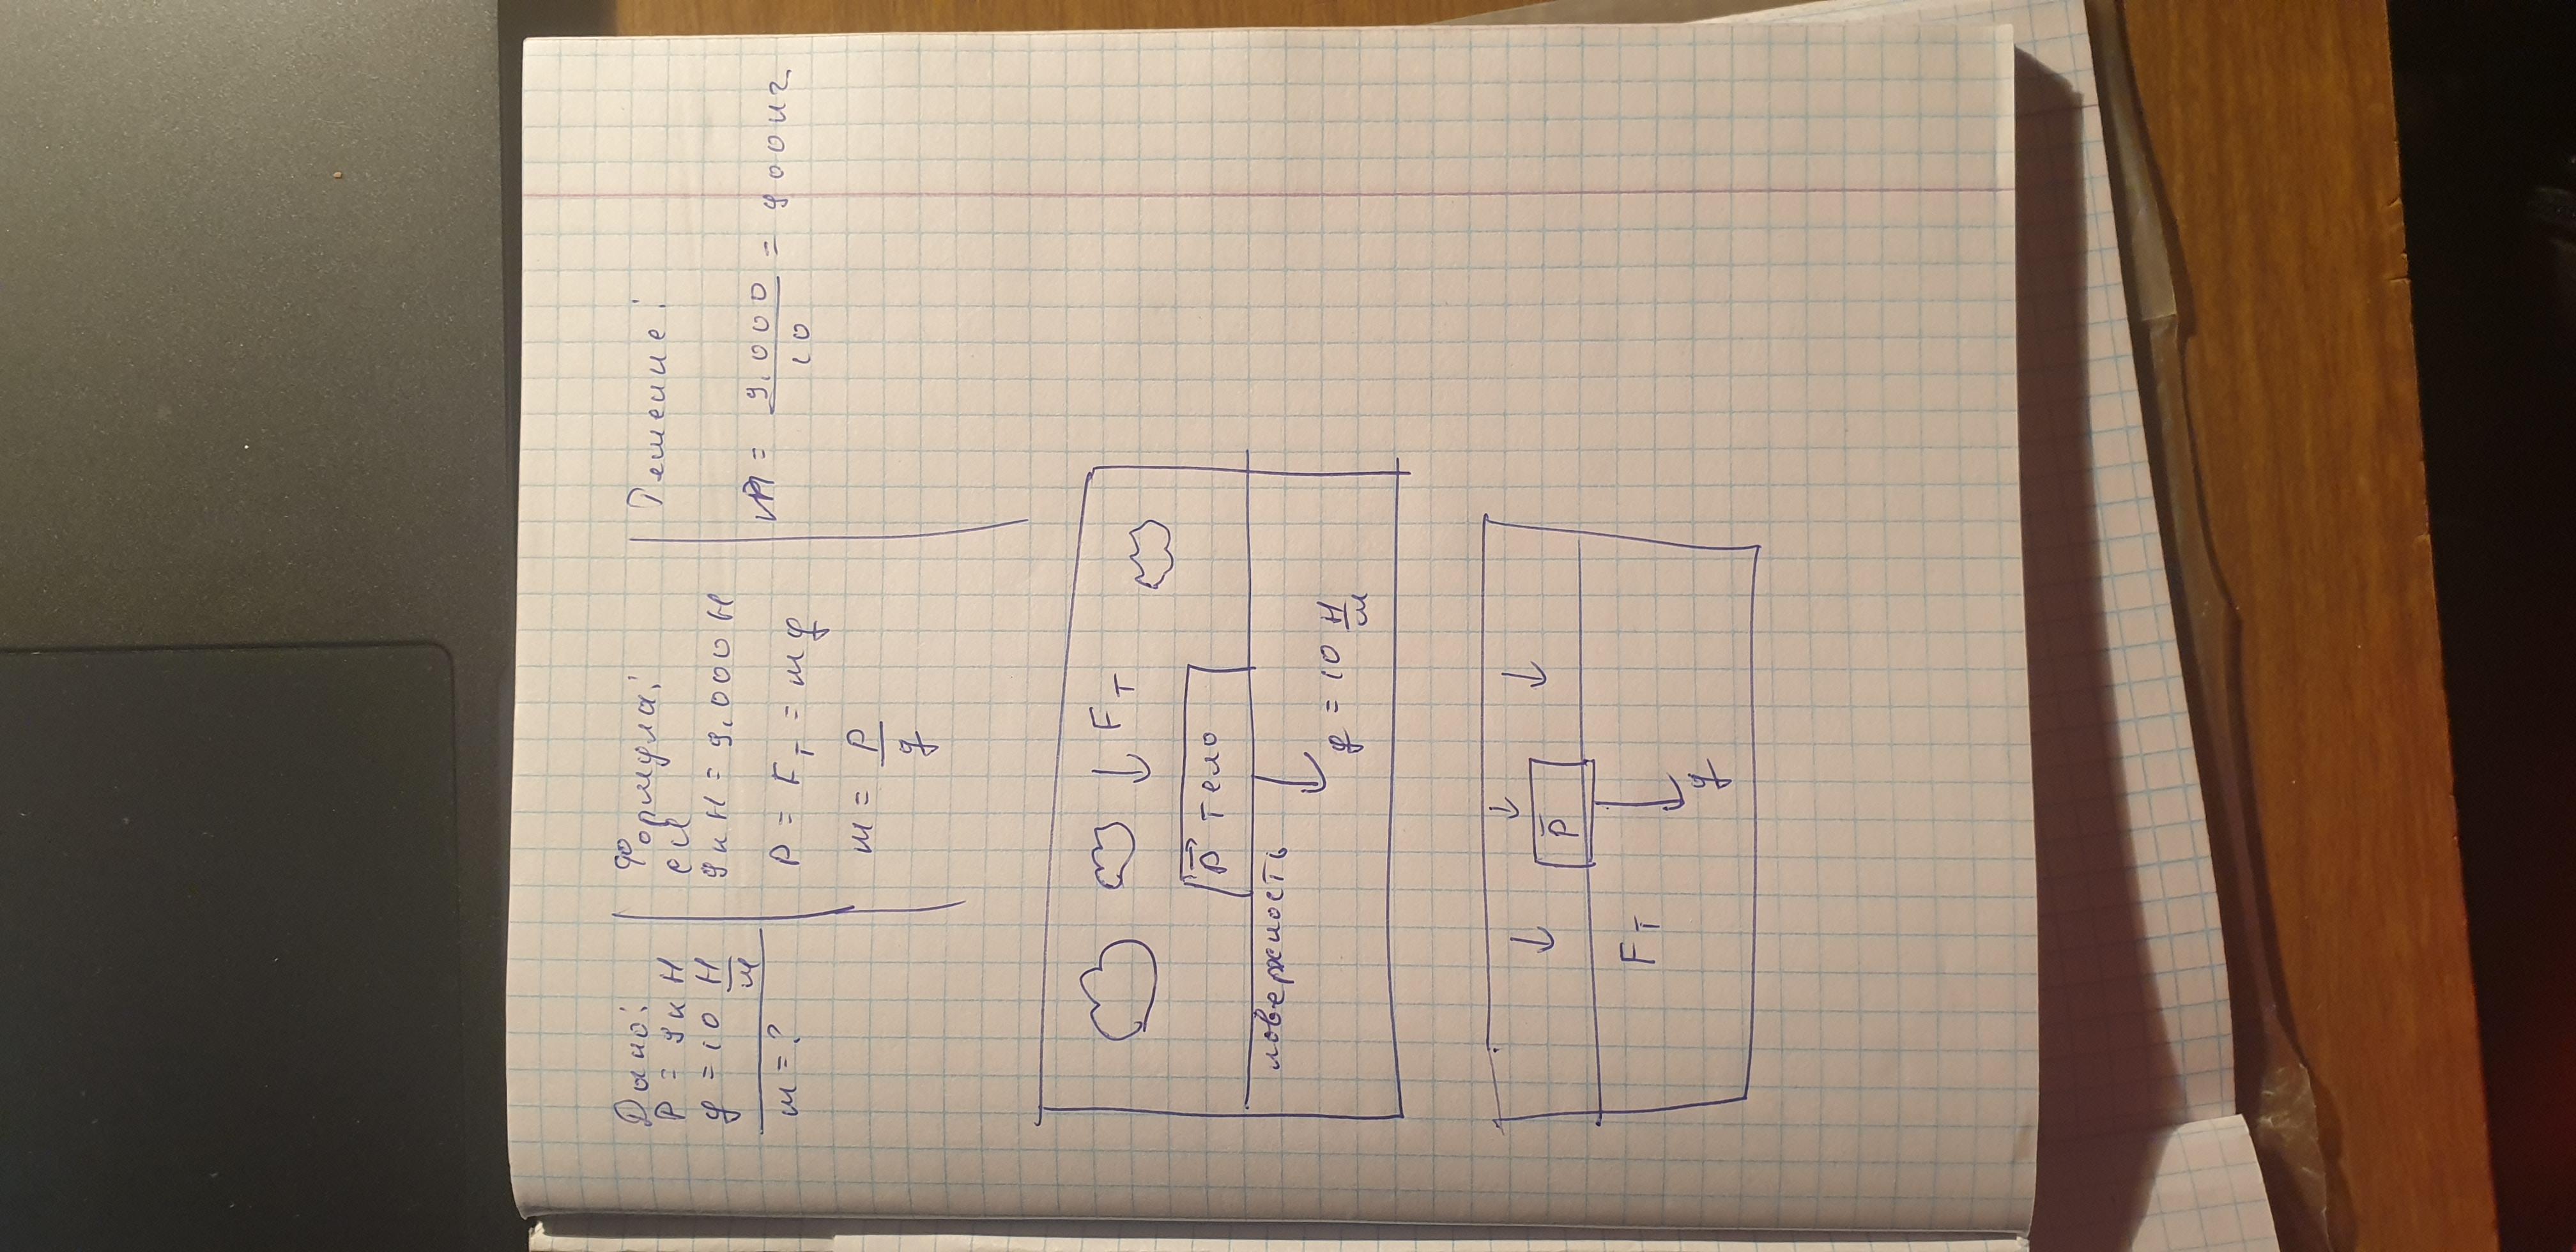 Дано:
P = 9кН
g = 10 Н/м
m = ?
формула:
си
9кН = 9.000 Н
P = Fт = mg
m = P/g
Решение:
m = 9.000/10 = 900кг
Fт
P тело
поверхность
g = 10 Н/м
P
Fт
g